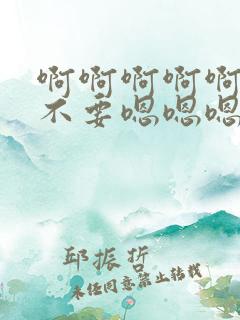 啊啊啊啊啊
不要嗯嗯嗯
邱振哲
未经同意禁止转载